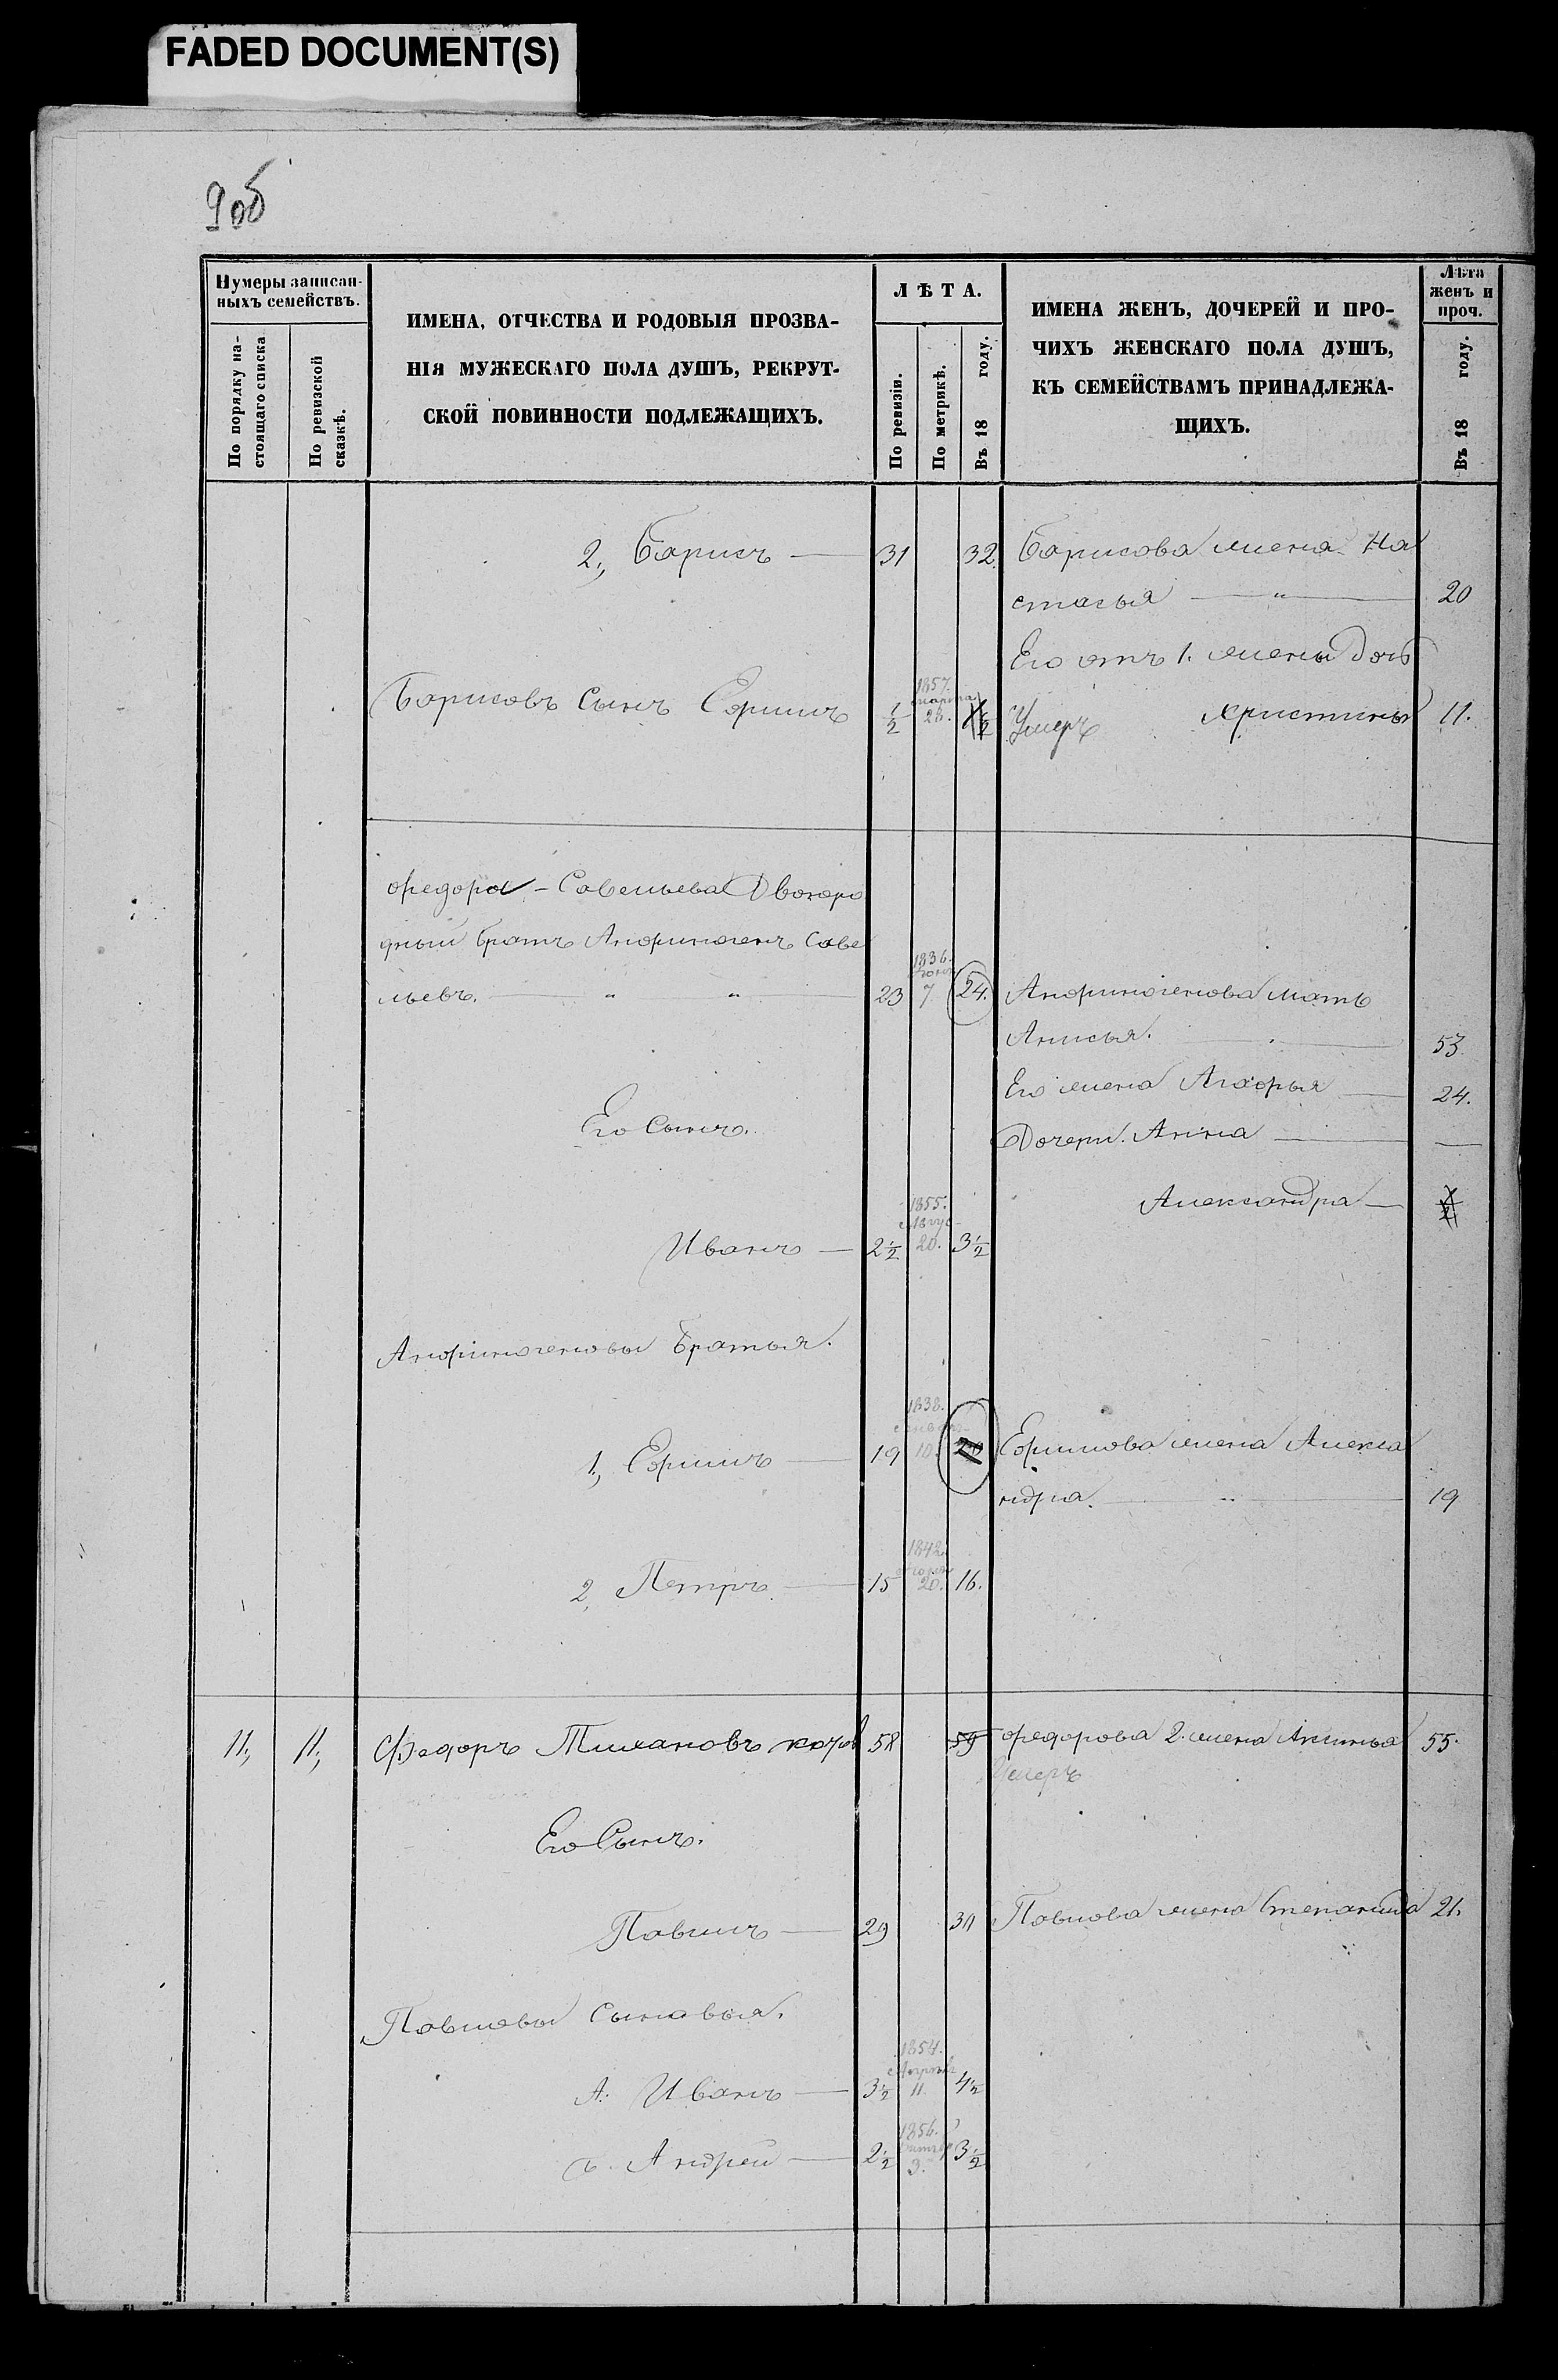 FADED DOCUMENT(S)
9об
Нумеры записан-
ныхъ семействъ.
По порядку на-
стоящаго списка
По ревизской
сказкѣ.
ИМЕНА, ОТЧЕСТВА И РОДОВЫЯ ПРОЗВА-
НІЯ МУЖЕСКАГО ПОЛА ДУШЪ, РЕКРУТ-
СКОЙ ПОВИННОСТИ ПОДЛЕЖАЩИХЪ.
ЛѢТА.
По ревизіи.
По метрикѣ.
Въ 18 году.
ИМЕНА ЖЕНЪ, ДОЧЕРЕЙ И ПРО-
ЧИХЪ ЖЕНСКАГО ПОЛА ДУШЪ,
КЪ СЕМЕЙСТВАМЪ ПРИНАДЛЕЖА-
ЩИХЪ.
Лѣта
женъ и
проч.
Въ 18 году.
2., Барисъ — 31 32. Барисова жена На
стасья — " — 20
Его отъ 1. жены дочь
Барисовъ Сынъ Ефимъ 1/2 1857. марта 28. 1/2 Умеръ Христинья 11.
Федора Савельева Двоюро
дный братъ Анфиногенъ Саве
льевъ. — " " — 23 1836. 7 24. Анфиногенова мать
Анисья. — 53
Его жена Агафья — 24.
Его Сынъ.
Дочери. Анна — —
Александра — 1/2
Иванъ — 2 1/2 1855. Авгус- 20. 3 1/2
Анфиногеновы Братья.
1., Ефимъ — 19 1838. 10. 20 Ефимова жена Алекса
ндра. — " — 19
2, Петръ. — 15 1842. 20. 16.
11., 11., Федоръ Тихановъ 58 59 Федорова 2. жена Аксинья 55.
Умеръ
Его Сынъ.
Павилъ — 29 30 Павлова жена Степанида 21.
Павловы Сыновья.
А. Иванъ — 3 1/2 1854. 11. 4 1/2
Андрей — 2 1/2 1856. 3. 3 1/2